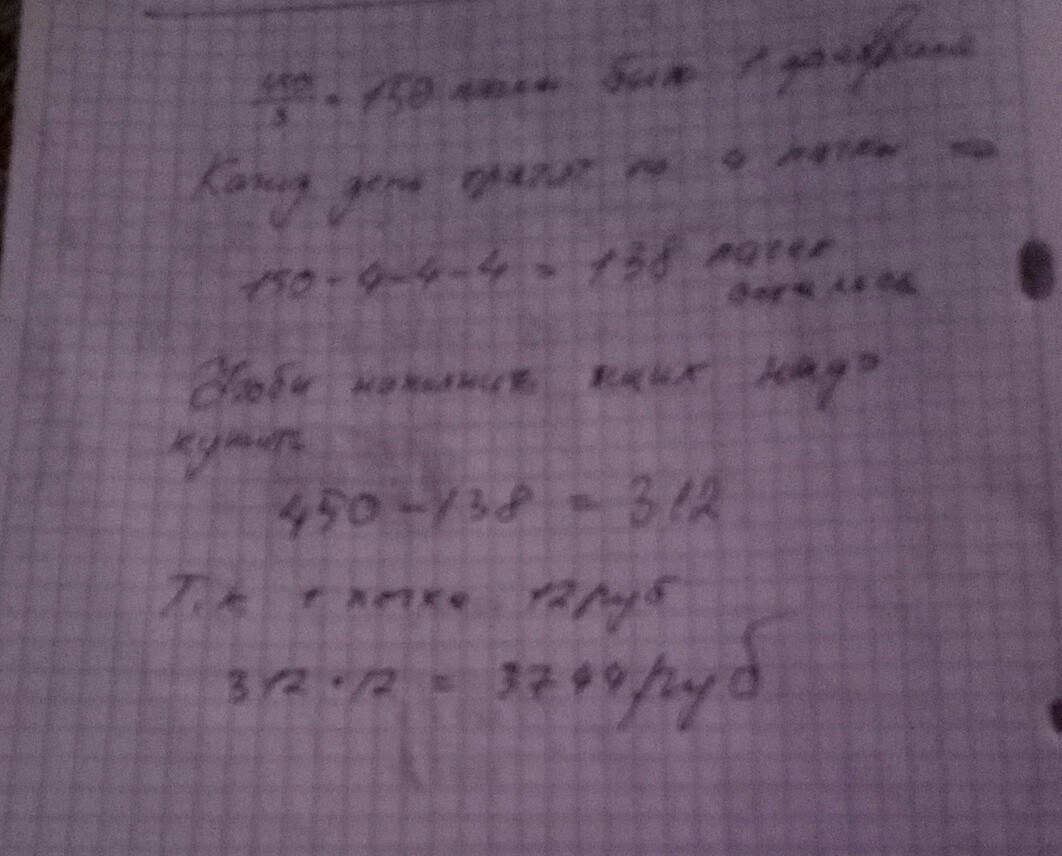 450/3 = 150 пачек был 1 декабря
Кажд день тратят по 4 пачки =>
150 - 4 - 4 - 4 = 138 пачек
осталось
Чтоби наполнить ящик надо
купить
450 - 138 = 312
Т.к 1 пачка 12 руб
312 · 12 = 3744 руб